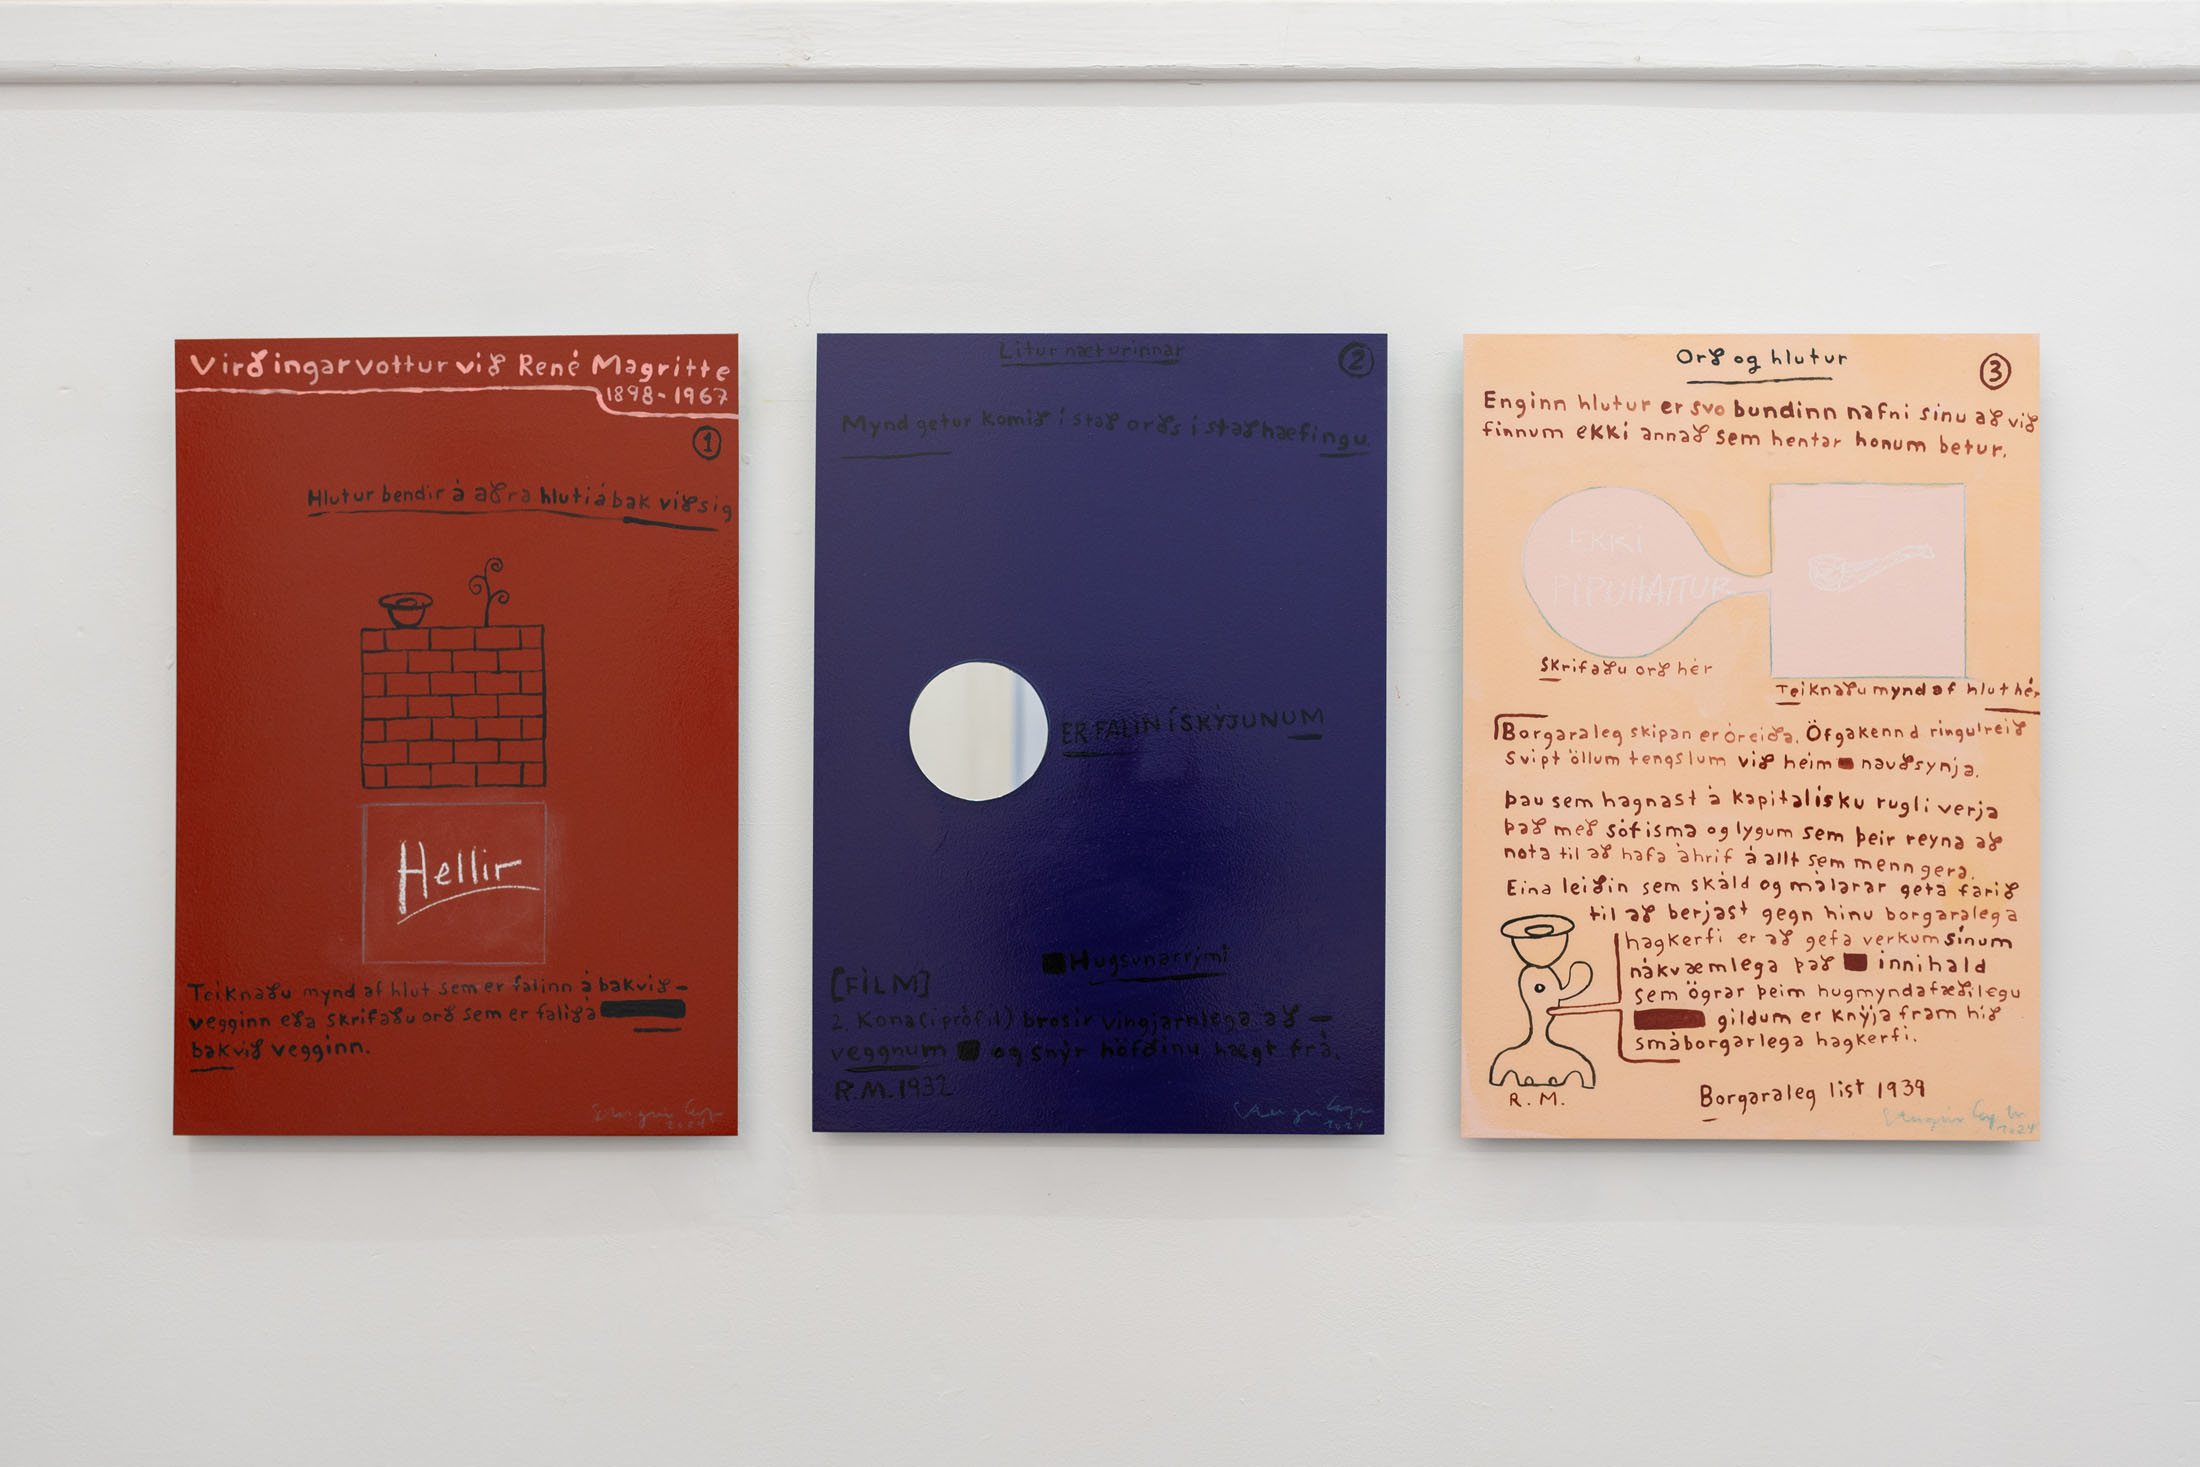 Virðingarvottur við René Magritte
1898-1967
1
Hlutur bendir á aðra hluti á bak við sig
Hellir
Teiknaðu mynd af hlut sem er falinn á bakvið-
vegginn eða skrifaðu orð sem er falið á
bakvið vegginn.
2024
Litur næturinnar
2
Mynd getur komið í stað orðs í staðhæfingu.
ER FALIN Í SKÝJUNUM
Hugsunarrými
[FILM]
2. Kona (í prófíl) brosir vingjarnlega að -
veggnum og snýr höfðinu hægt frá.
R.M. 1932
2024
Orð og hlutur
3
Enginn hlutur er svo bundinn nafni sínu að við
finnum ekki annað sem hentar honum betur.
EKKI
PÍPUHATTUR
Skrifaðu orð hér
Teiknaðu mynd af hlut hér
Borgaraleg skipan er óreiða. Öfgakennd ringulreið
Svipt öllum tengslum við heim nauðsynja.
Þau sem hagnast á kapitalísku rugli verja
það með sófisma og lygum sem þeir reyna að
nota til að hafa áhrif á allt sem menn gera.
Eina leiðin sem skáld og málarar geta farið
til að berjast gegn hinu borgaralega
hagkerfi er að gefa verkum sínum
nákvæmlega það innihald
sem ögrar þeim hugmyndafæðilegu
gildum er knýja fram hið
smáborgarlega hagkerfi.
R.M.
Borgaraleg list 1939
2024